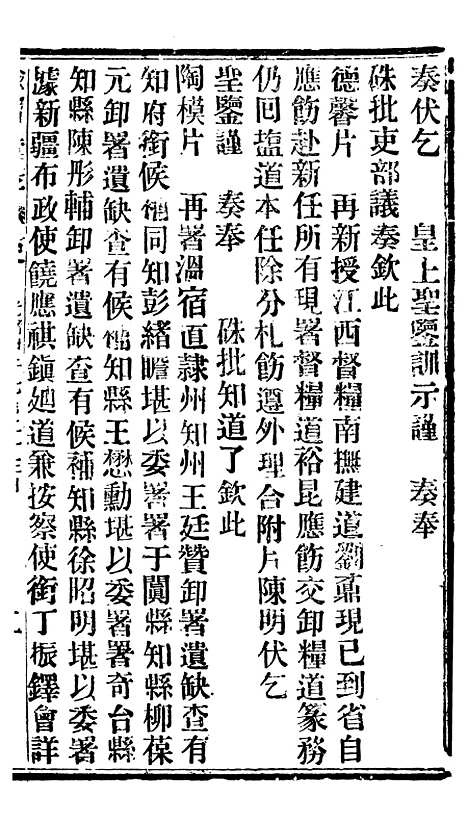 奏伏乞　　皇上聖鑒訓示謹　奏奉
硃批吏部議奏欽此
德馨片　再新授江西督糧南撫建道劉鼒現已到省自
應飭赴新任所有現署督糧道裕昆應飭交卸糧道篆務
仍回塩道本任除分札飭遵外理合附片陳明伏乞
聖鑒謹　　奏奉　　硃批知道了欽此
陶模片　再署溫宿直隸州知州王廷贊卸署遺缺查有
知府銜候補同知彭緒瞻堪以委署署于闐縣知縣柳葆
元卸署遺缺查有候補知縣王懋勳堪以委署署奇台縣
知縣陳彤輔卸署遺缺查有候補知縣徐昭明堪以委署
據新疆布政使饒應祺鎮迪道兼按察使銜丁振鐸會詳